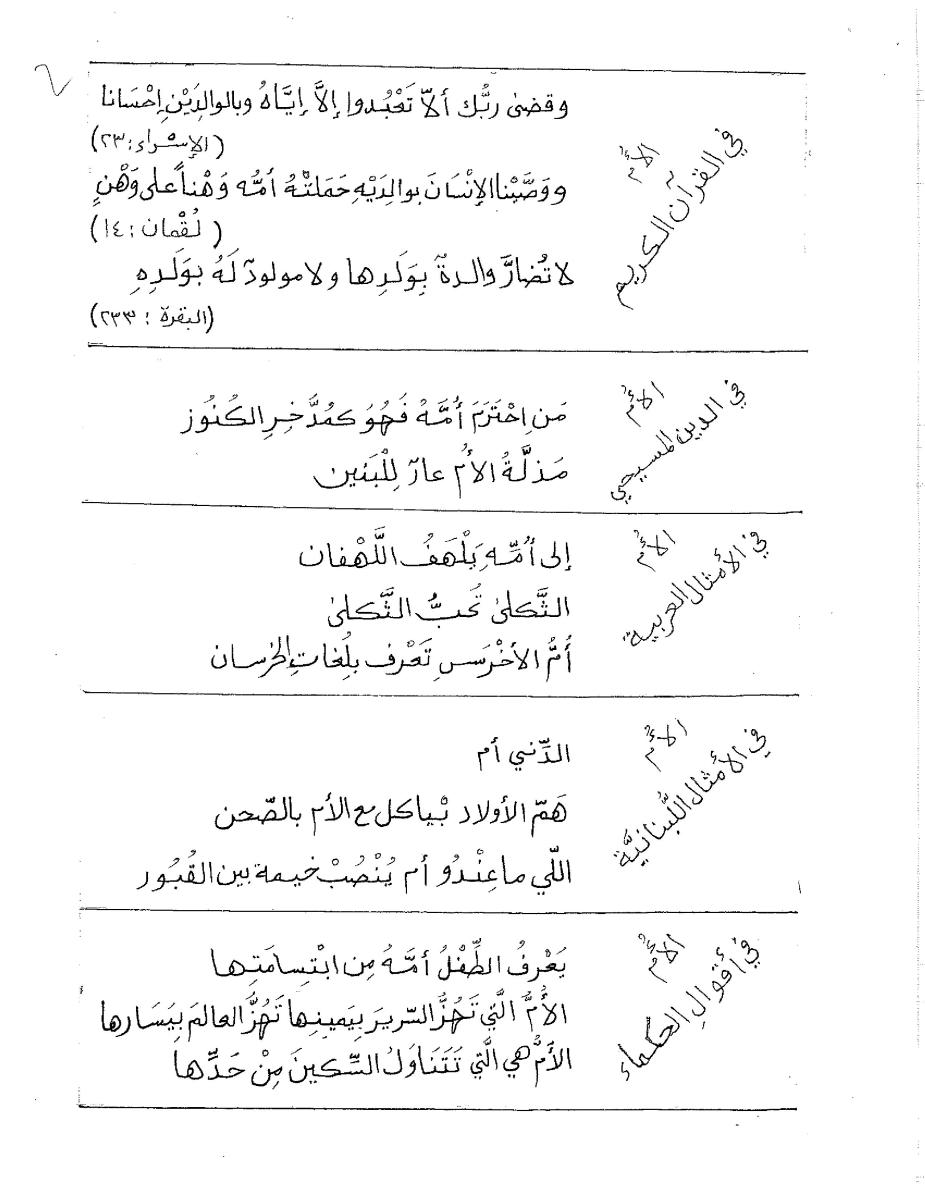 الأم
في القرآن الكريم
وقضىٰ ربُّك ألاّ تَعْبُدوا إلاَّ إيَّاهُ وبالوالِدَيْنِ إحْسَانا
(الإسْراء: ٢٣)
ووَصَّيْنا الإنْسَانَ بوالِدَيْهِ حَمَلَتْهُ أمُّه وَهْناً على وَهْنٍ
(لُقْمان: ١٤)
لا تُضارَّ والدةٌ بِوَلَدِها ولا مولودٌ لَهُ بوَلَدِهِ
(البقرة: ٢٣٣)
الأُم
في الدين المسيحي
مَن اِحْتَرَمَ أُمَّهُ فَهُوَ كمُدَّخِرِ الكُنُوز
مَذلَّةُ الأُم عارٌ لِلْبَنين
الأُم
في الأمثال العربية
إلى أُمِّهِ يَلْهَفُ اللَّهْفان
الثَّكلىٰ تُحبُّ الثَّكلىٰ
أُمُّ الأخْرَسِ تَعْرف بلُغاتِ الخرسان
الأُم
في الأمثال اللُّبنانيَّة
الدِّني أم
هَمّ الأولاد بْياكل مع الأم بالصّحن
اللّي ما عِنْدُو أم يُنْصُبْ خيمة بين القُبُور
الأُم
في أقوالِ الحكماء
يَعْرِفُ الطِّفْلُ أمَّهُ مِن ابْتِسامَتِها
الأُمُّ الَّتي تَهُزُّ السّريرَ بيَمينِها تَهُزُّ العالمَ بيَسَارها
الأمُّ هي الَّتي تَتَنَاوَلُ السِّكينَ مِنْ حَدِّها